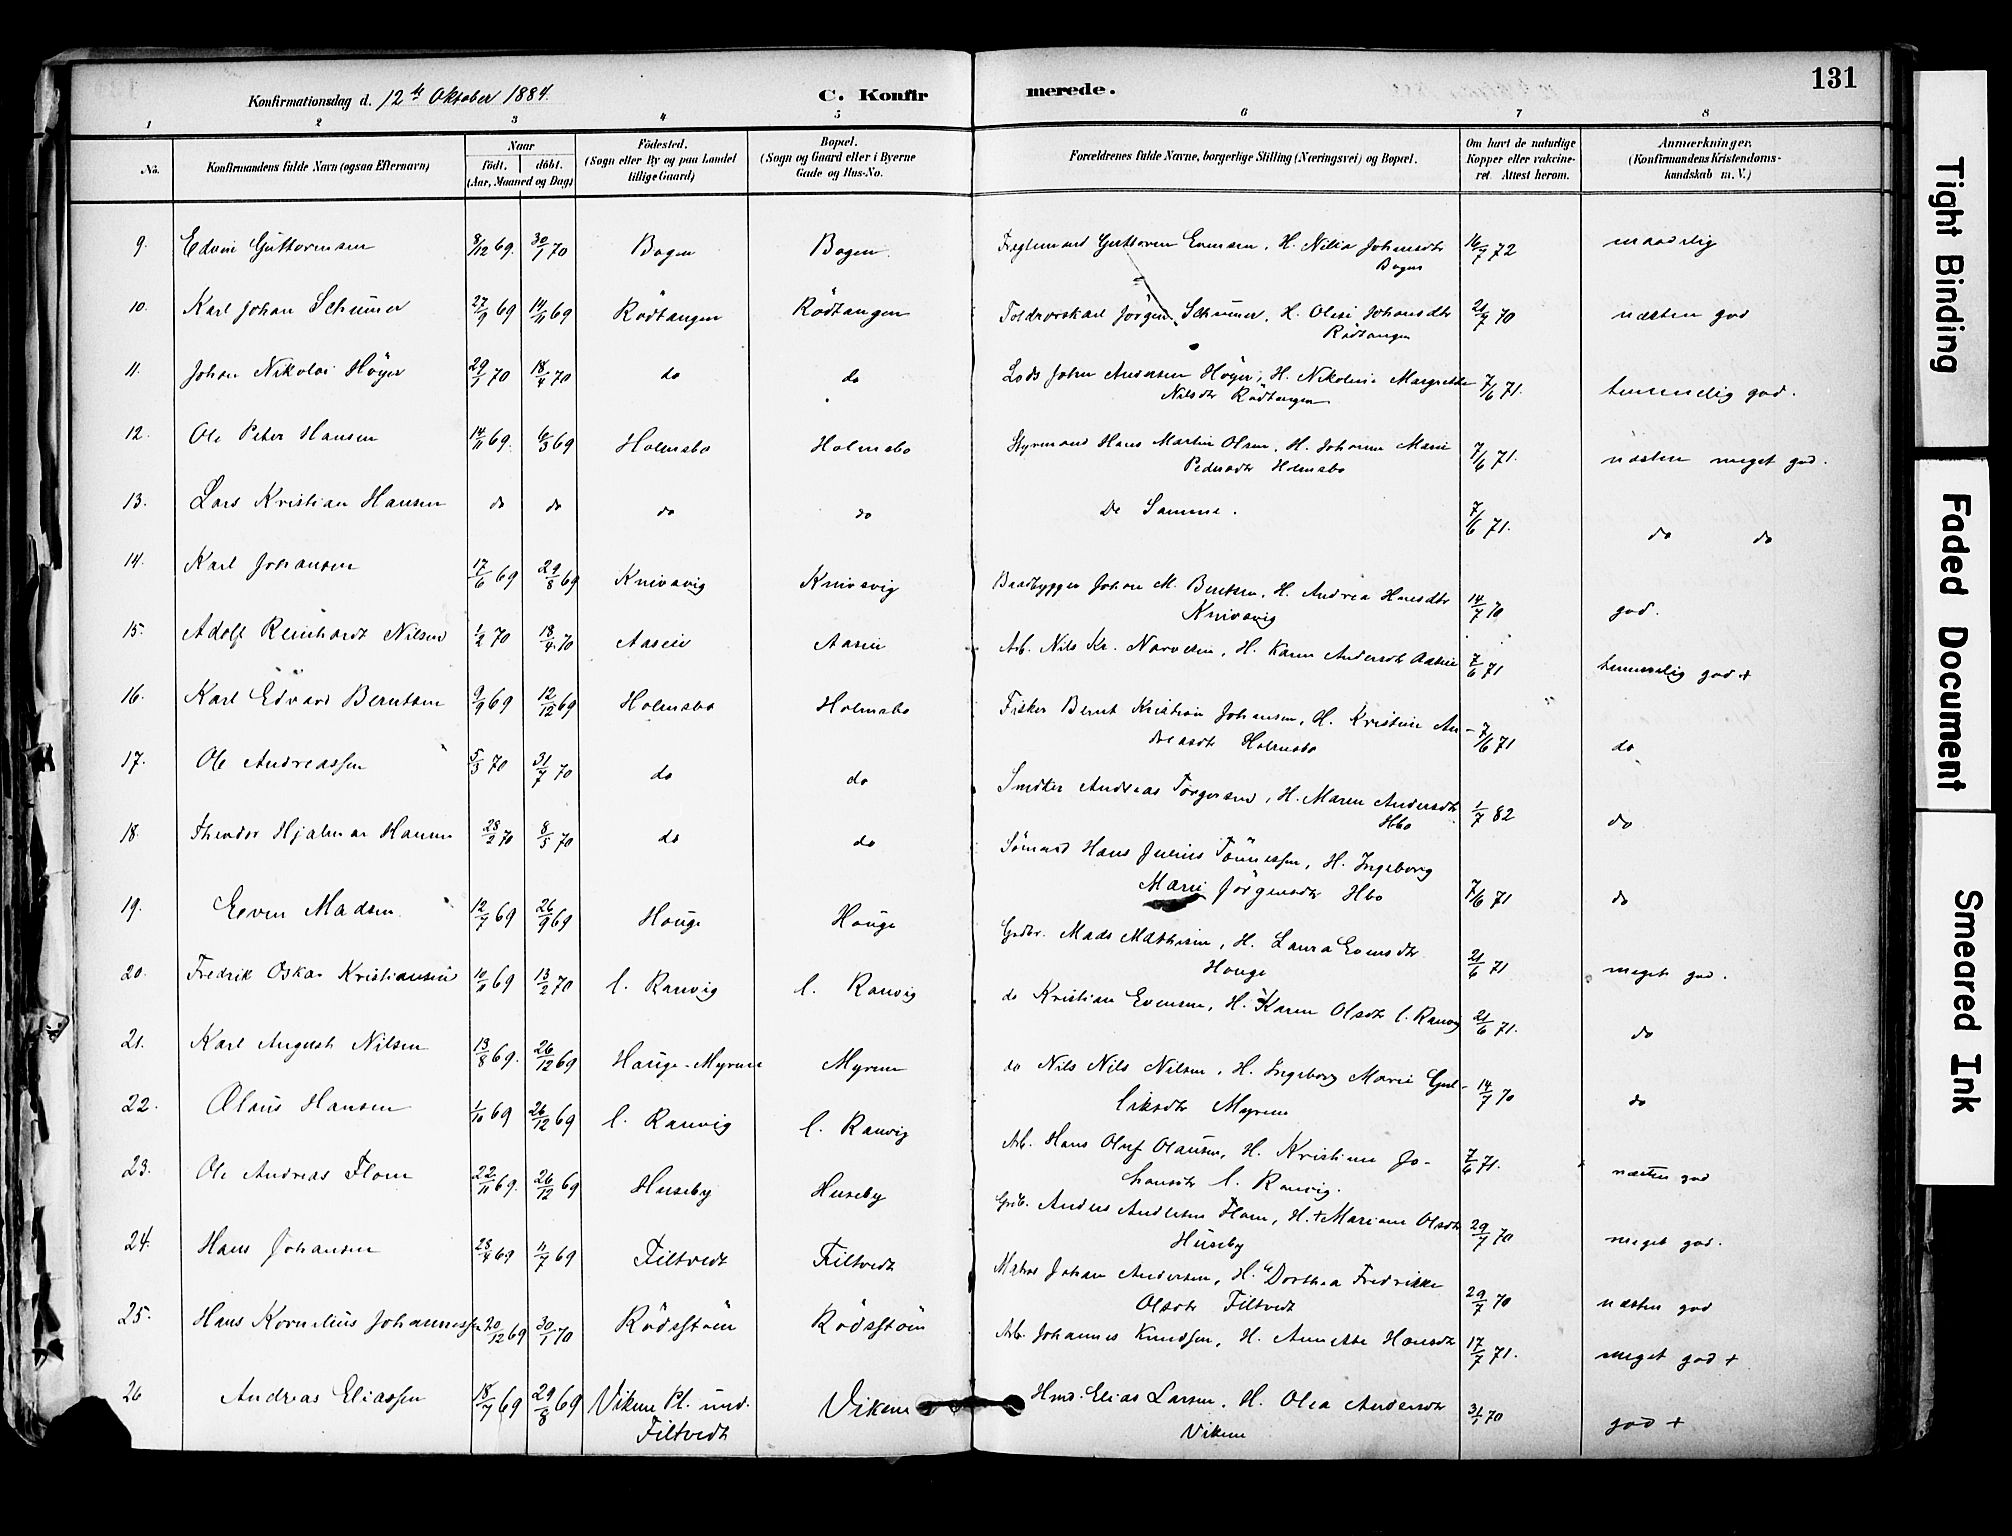 131
Konfirmationsdag d. 12te Oktober 1884.
C. Konfirmerede.
1 2 3 4 5 6 7 8
No. Konfirmandens fulde Navn (ogsaa Efternavn) Naar født. døbt. (Aar, Maaned og Dag) Födested. (Sogn eller By og paa Landet tillige Gaard) Bopæl. (Sogn og Gaard eller i Byerne Gade og Hus-No. Forældrenes fulde Navne, borgerlige Stilling (Næringsvei) og Bopæl. Om havt de naturlige Kopper eller vakcineret. Attest herom. Anmærkninger. (Konfirmandens Kristendomskundskab m. V.)
9. Edvin Guttormsen 8/12 69. 30/1 70 Bogen Bogen Guttorm Evensen, H. Nilia Johnsdtr 16/7 72 maadelig
Bogen
10. Karl Johan Schumer 27/9 69 14/11 69 Rödtangen Rödtangen Toldroerskarl Jörgen Schumer, H. Olea Johansdtr 21/7 70 næsten god
Rödtangen
11. Johan Nikolai Höyer 29/1 70 18/4 70 do do Lods John Andersen Höyer, H. Nikoline Margrethe 7/6 71. temmelig god.
Nilsdtr Rödtangen
12. Ole Peter Hansen 14/11 69. 6/3 69 Holmsbo Holmsbo Styrmand Hans Martin Olsen, H. Johanne Marie 7/6 71. næsten meget god.
Pedersdtr Holmsbo
13. Lars Kristian Hansen do do do do De Samme. 7/6 71. do do
14. Karl Johansen 17/6 69 29/8 69 Knivsvig Knivsvig Baadbygger Johan M. Berntsen, H. Andrea Hansdtr 14/7 70 god.
Knivsvig
15. Adolf Reinhardt Nilsen 1/2 70 18/4 70 Aasen Aasen Arb. Nils Kr. Narvesen, H. Karen Andersdtr Aasen 7/6 71 temmelig god +
16. Karl Edvard Berntsen 9/9 69 12/12 69 Holmsbo Holmsbo Fisker Bernt Kristian Johansen, H. Kristine An- 7/6 71 do
dreasdtr Holmsbo
17. Ole Andreassen 5/3 70 31/7 70 do do Andreas Torgersen, H. Maren Andersdtr 1/7 82 do
Hbo
18. Theodor Hjalmar Hansen 28/2 70 8/5 70 do do Sömand Hans Julius Tönnessen, H. Ingeborg
Marie Jörgensdtr Hbo 7/6 71 do
19. Even Madsen 12/7 69 26/9 69 Houge Houge Grdbr. Mads Mathisen, H. Laura Evensdtr 21/6 71 meget god.
Houge
20. Fredrik Oskar Kristiansen 10/11 69 13/2 70 l. Ranvig l. Ranvig do Kristian Evensen, H. Karen Olsdtr l. Ranvig 21/6 71. do
21. Karl August Nilsen 13/8 69. 26/12 69 Houge-Myrene Myrene do Nils Nils Nilsen, H. Ingeborg Marie Gul- 14/7 70 do
liksdtr Myrene
22. Olaus Hansen 1/10 69 26/12 69 l. Ranvig l. Ranvig Arb. Hans Oluf Olausen, H. Kristine Jo- 7/6 71. næsten god
hansdtr l. Ranvig.
23. Ole Andreas Flom 22/11 69. 26/12 69 Huseby Huseby Grdb. Anders Andersen Flom, H. + Mariane Olsdtr 29/7 70 meget god.
Huseby
24. Hans Johansen 23/4 69 11/7 69 Filtvedt Filtvedt Matros Johan Andersen, H. Dorthea Fredrikke 29/7 70 næsten god
Olsdtr Filtvedt
25. Hans Kornelius Johannessen 20/12 69 30/1 70 Rödsstöen Rödsstöen Arb. Johannes Knudsen, H. Annette Hansdtr 17/7 71. meget god +
26 Andreas Eliassen 18/7 69 29/8 69 Vikene Pl. und. Filtvedt Vikene Hmd. Elias Larsen, H. Olea Andersdtr 3/1 70 god +
Vikene
Tight Binding
Faded Document
Smeared Ink